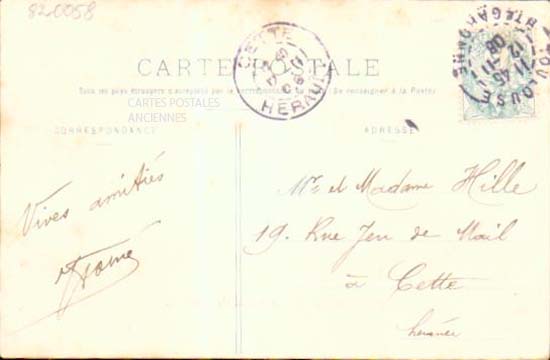 82-0058
CARTE POSTALE
CETTE
HERAULT
Tous les pays étrangers n'acceptent pas la correspondance au recto. Se renseigner à la Poste
CARTES POSTALES
ANCIENNES
CORRESPONDANCE
ADRESSE
Vives amitiés
Mr et Madame Hille
19. Rue Jeu de Mail
à Cette